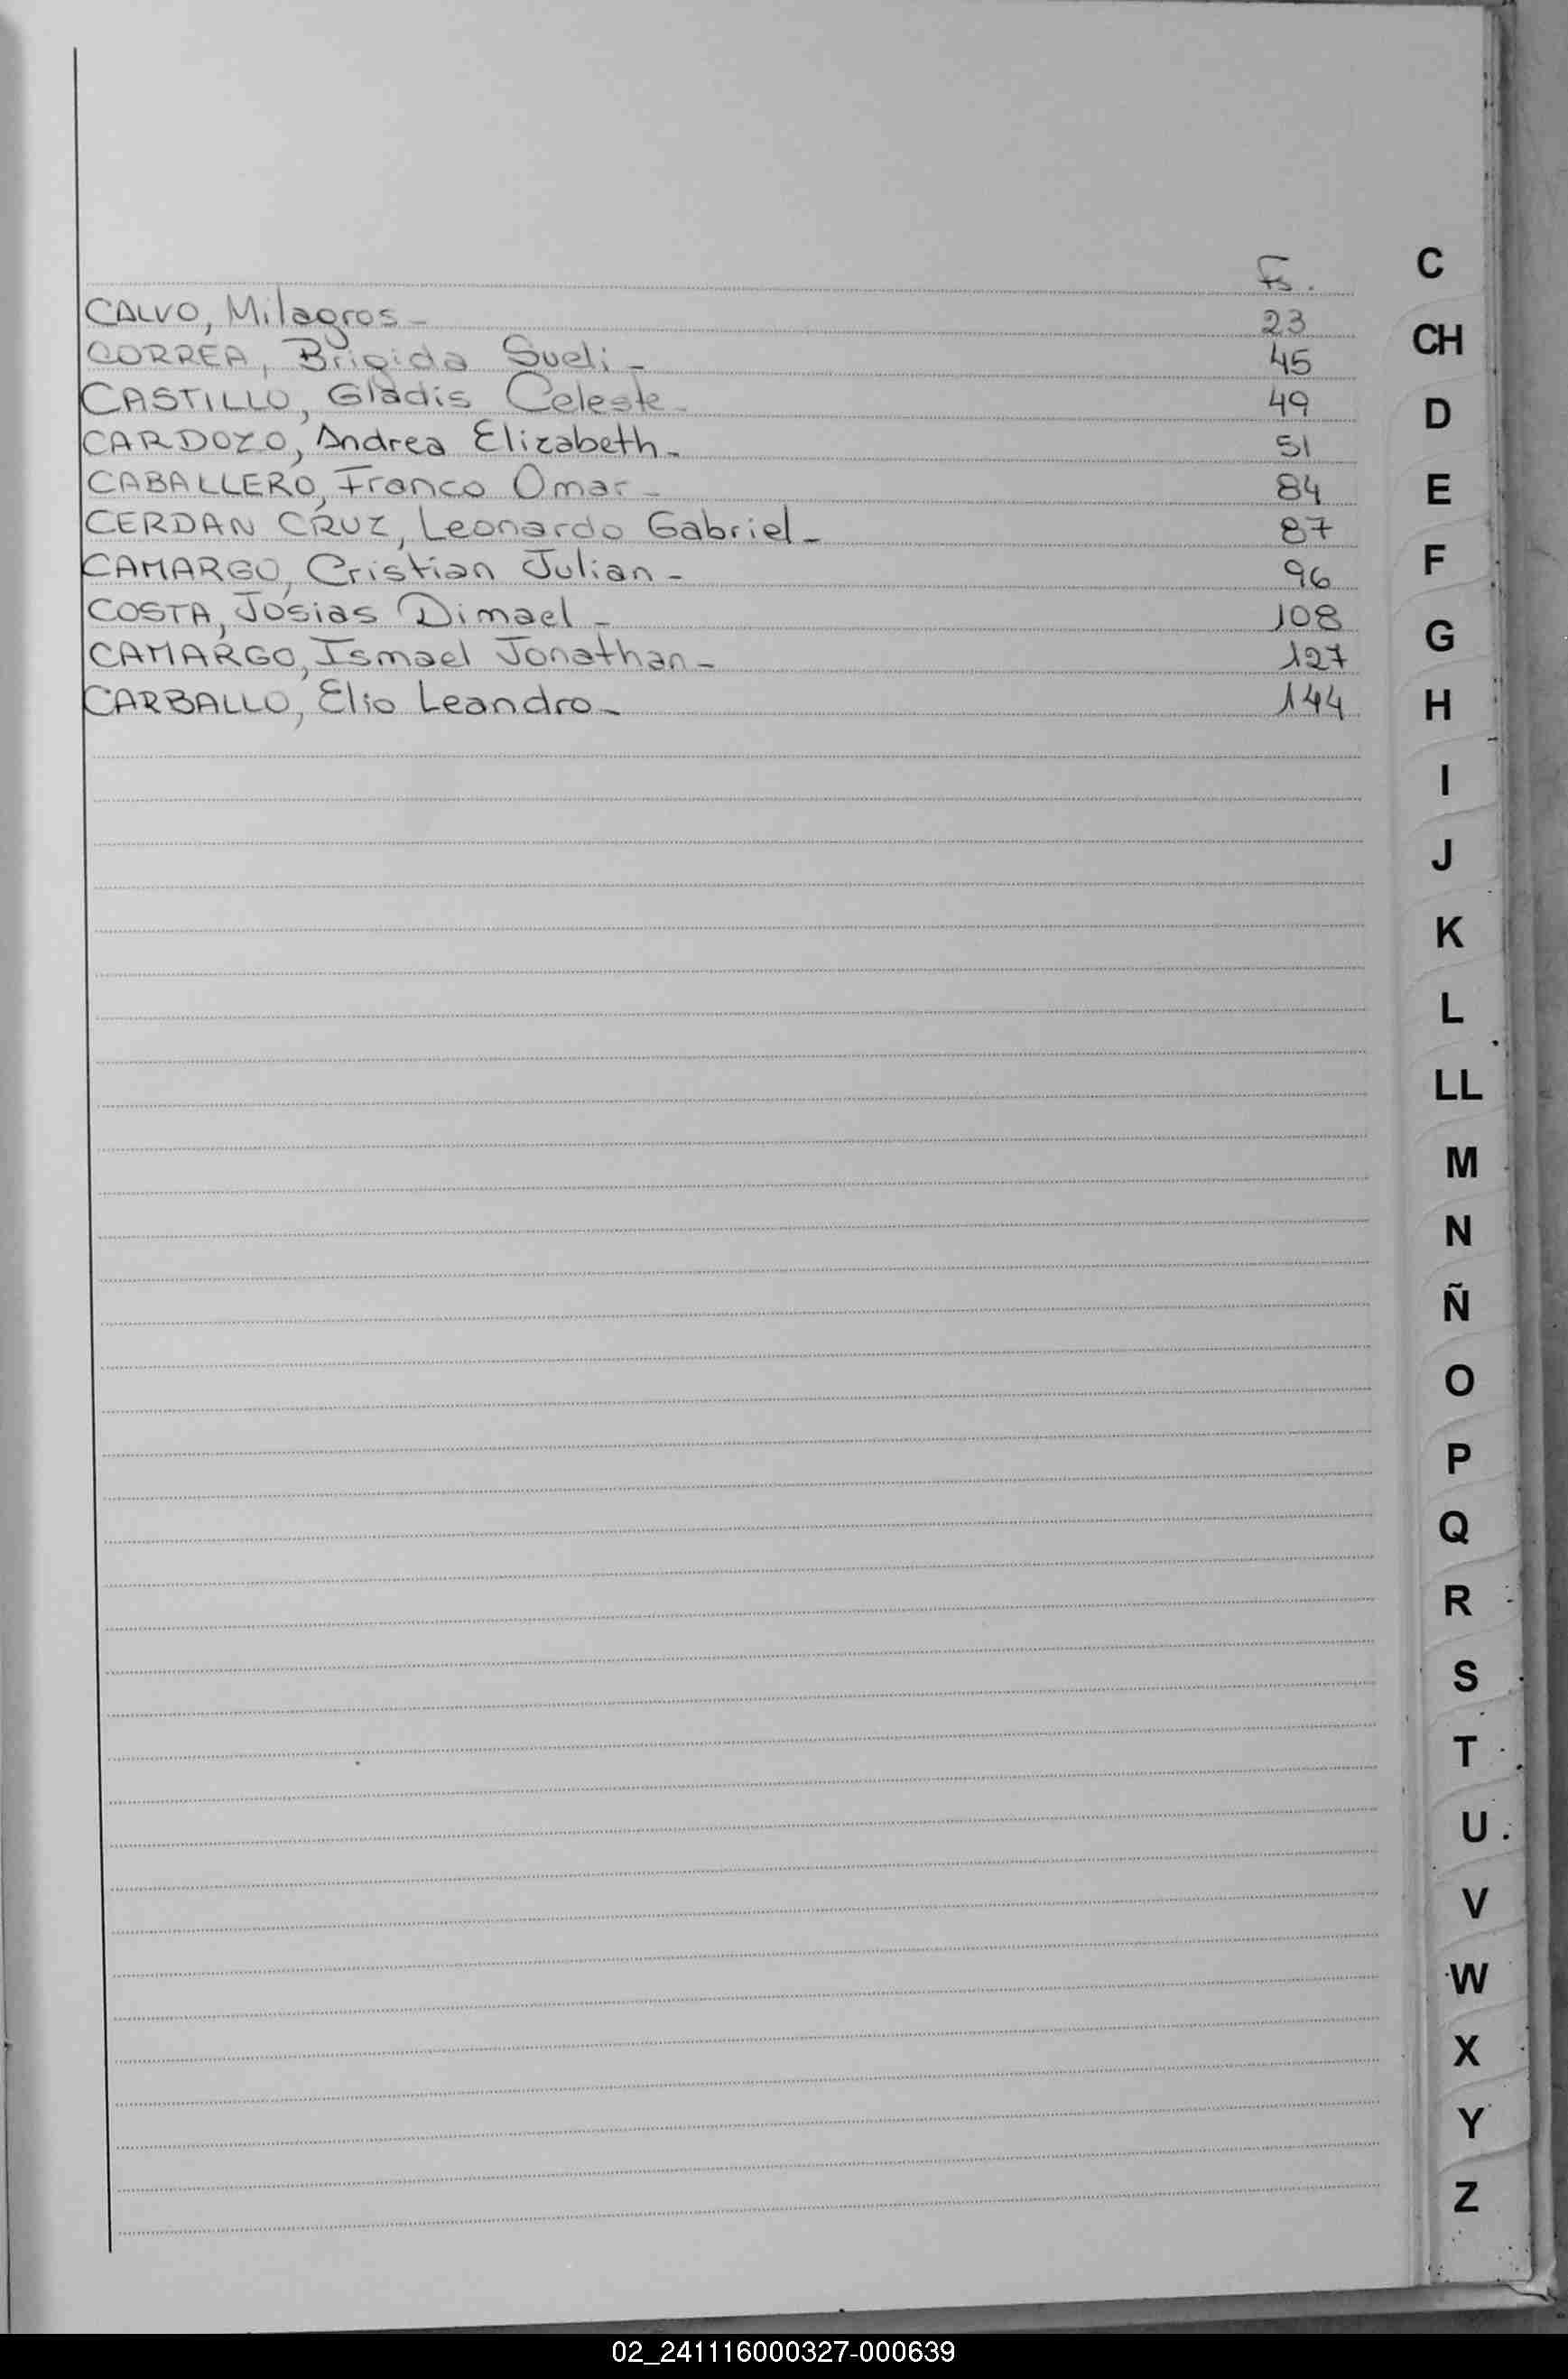 Fs.
CALVO, Milagros - 23
CORREA, Brigida Sueli - 45
CASTILLO, Gladis Celeste - 49
CARDOZO, Andrea Elizabeth - 51
CABALLERO, Franco Omar - 84
CERDAN CRUZ, Leonardo Gabriel - 87
CAMARGO, Cristian Julian - 96
COSTA, Josias Dimael - 108
CAMARGO, Ismael Jonathan - 127
CARBALLO, Elio Leandro - 144
C
CH
D
E
F
G
H
I
J
K
L
LL
M
N
Ñ
O
P
Q
R
S
T
U
V
W
X
Y
Z
02_241116000327-000639